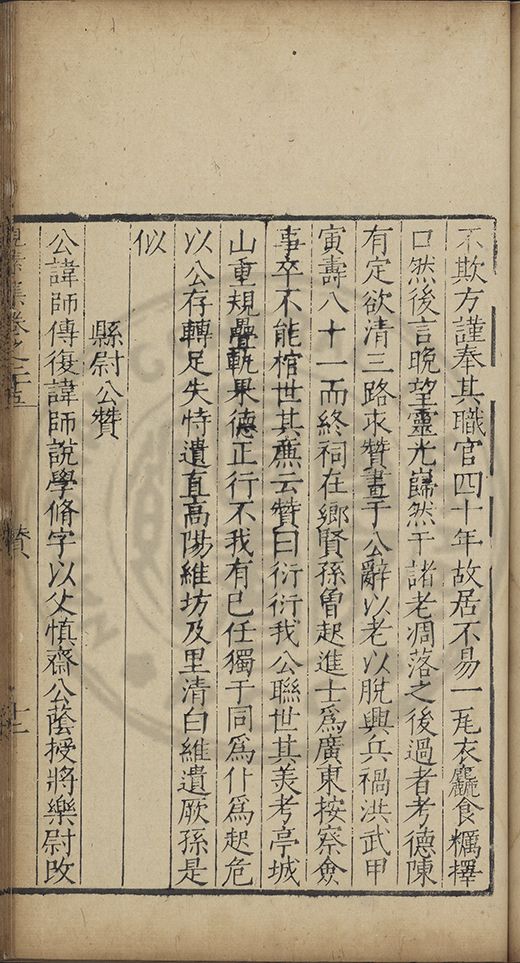 不欺方謹奉其職官四十年故居不易一瓦衣麤食糲擇
口然後言晚望靈光巋然于諸老凋落之後過者考德陳
有定欲清三路求贊畫于公辭以老以脫興兵禍洪武甲
寅壽八十一而終祠在鄉賢孫曾起進士爲廣東按察僉
事卒不能棺世其薦云贊曰衍衍我公聯世其美考亭城
山重規疊軌果德正行不我有已任獨于同爲仆爲起危
以公存轉足失恃遺直高陽維坊及里清白維遺厥孫是
似
縣尉公贊
公諱師傅復諱師說學脩字以父慎齋公蔭授將樂尉改
見素集卷之二十五
贊
十二